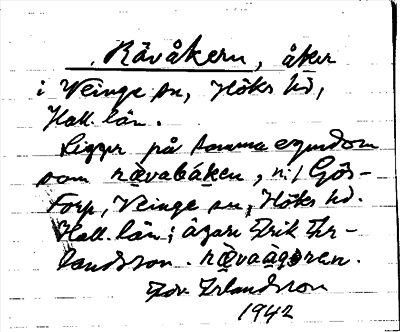 Rävåkern, åker
i Veinge sn, Höks hd,
Hall. län.
Ligger på samma egendom
som rävabáken, n:1 Gös-
torp, Veinge sn, Höks hd.
Hall. län; ägare Erik Er-
landsson. rävaågeren.
Erlandsson
1942